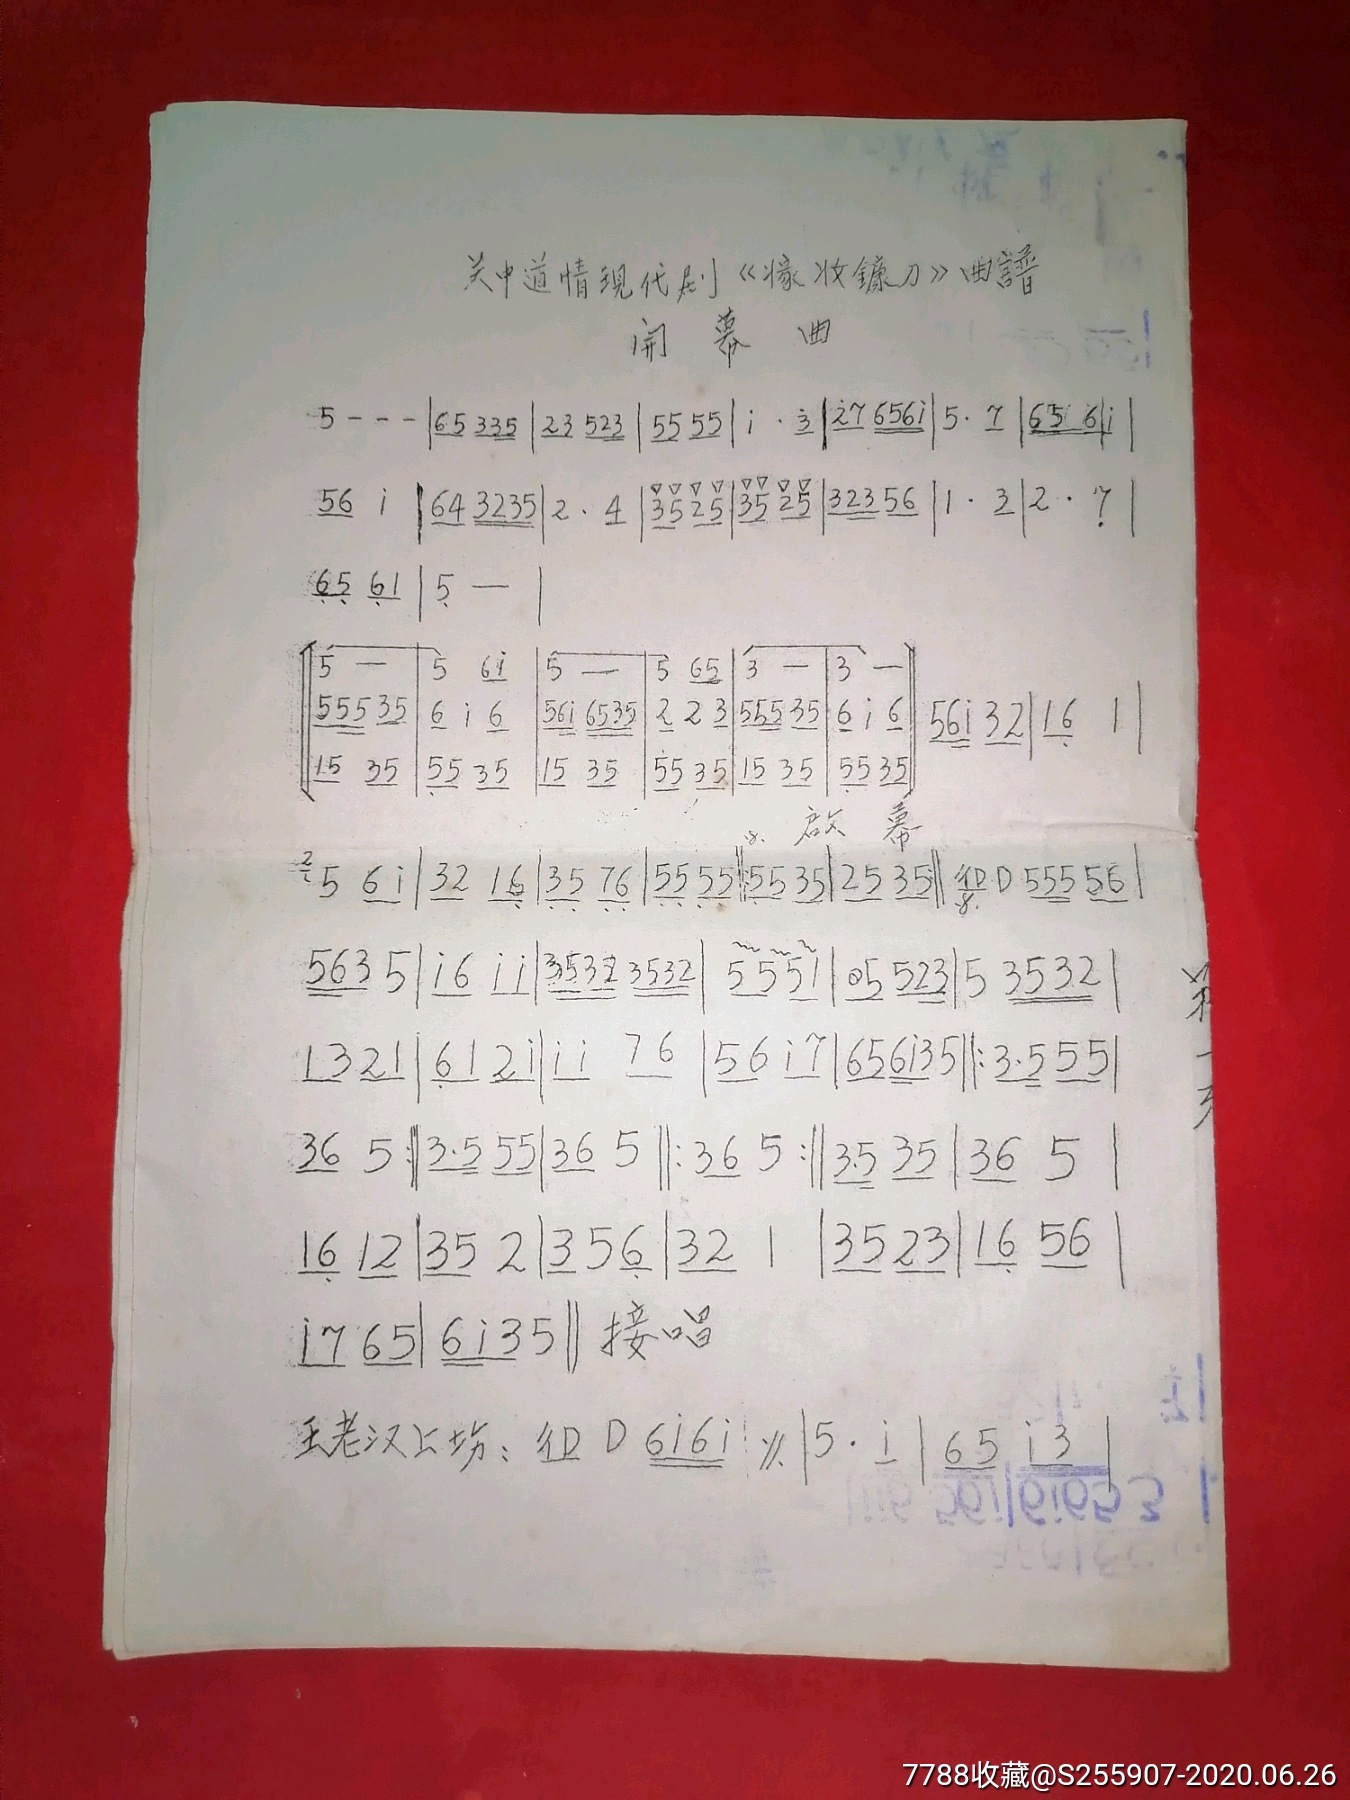 关中道情现代剧《收镰刀》曲譜
開 幕 曲
5 - - - | 65 335 | 23 523 | 55 55 | i · 3 | i7 656i | 5 · 7 | 65 6 | i |
56 i | 64 3235 | 2 · 4 | 35 25 | 35 25 | 323 56 | 1 · 3 | 2 · 7 |
65 61 | 5 — |
5 — | 5 6i | 5 — | 5 65 | 3 — | 3 —
555 35 | 6 i 6 | 56i 6535 | 2 2 3 | 555 35 | 6 i 6 | 56i 32 | 16 1 |
15 35 | 55 35 | 15 35 | 55 35 | 15 35 | 55 35
啟 幕
5 6i | 32 16 | 35 76 | 55 55 ‖: 55 35 | 25 35 ‖ D 555 56 |
563 5 | i6 ii | 3532 3532 | 5 5 5 i | 05 523 | 5 3532 |
13 21 | 61 2i | ii 76 | 56 i7 | 656i35 ‖: 3·5 55 |
36 5 :‖ 3·5 55 | 36 5 ‖: 36 5 :‖ 3·5 35 | 36 5 |
16 12 | 35 2 | 3 5 6 | 32 1 | 35 23 | 16 56 |
i7 65 | 6i35 ‖ 接唱
王老汉上场： D 6i6i | 5 · i | 65 i3 |
7788收藏@S255907-2020.06.26